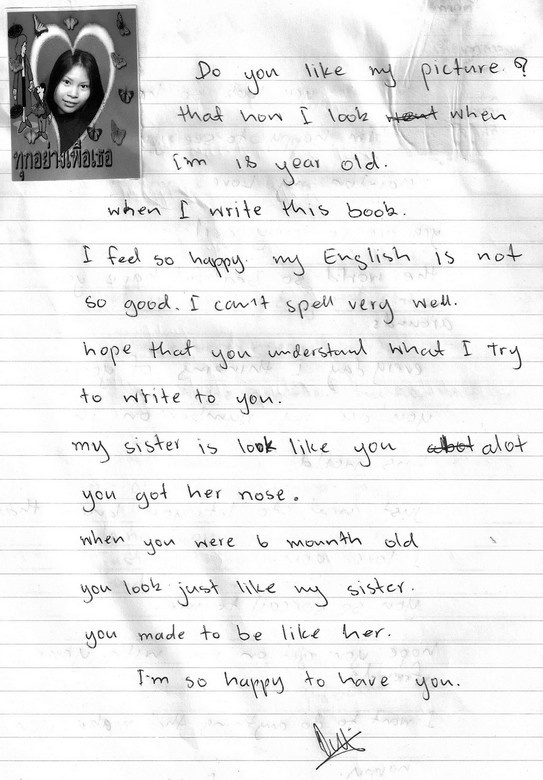 Do you like my picture.?
that how I look when
I'm 18 year old.
ทุกอย่างเพื่อเธอ
when I write this book.
I feel so happy. my English is not
so good. I can't spell very well.
hope that you understand what I try
to write to you.
my sister is look like you alot
you got her nose.
when you were 6 mounth old
you look just like my sister.
you made to be like her.
I'm so happy to have you.